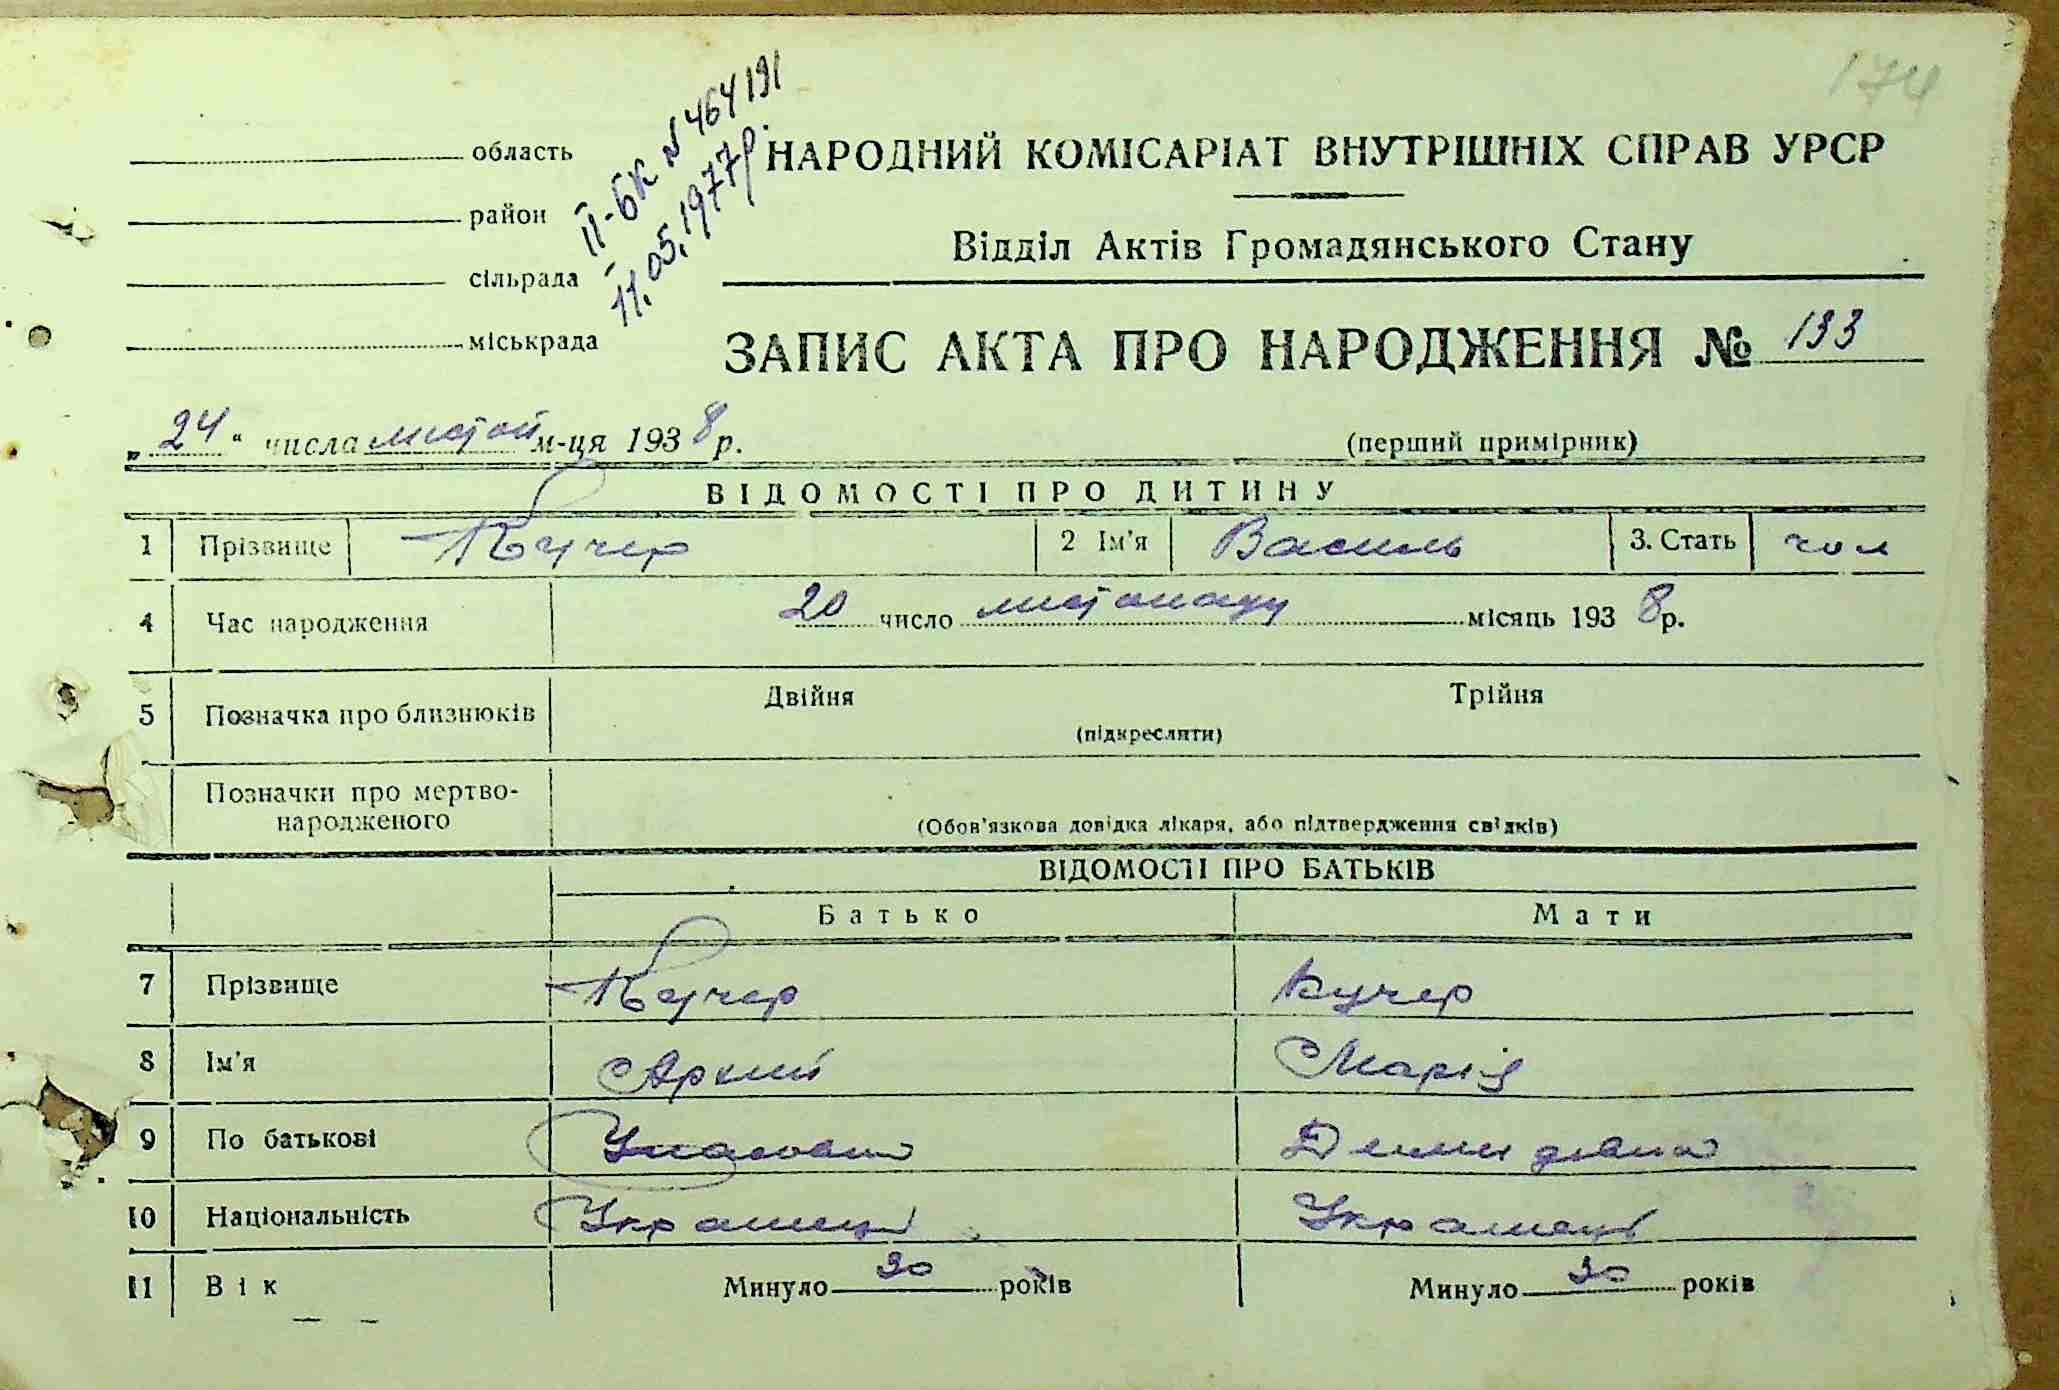 174
II-БК № 464191
11.05.1977р.
область
район
сільрада
міськрада
НАРОДНИЙ КОМІСАРІАТ ВНУТРІШНІХ СПРАВ УРСР
Відділ Актів Громадянського Стану
ЗАПИС АКТА ПРО НАРОДЖЕННЯ № 133
„24“ числа листоп м-ця 1938 р.
(перший примірник)
ВІДОМОСТІ ПРО ДИТИНУ
1 Прізвище Кучер 2 Ім'я Василь 3. Стать чол
4 Час народження 20 число листопаду місяць 1938 р.
5 Позначка про близнюків Двійня Трійня
(підкреслити)
Позначки про мертво-
народженого
(Обов'язкова довідка лікаря, або підтвердження свідків)
ВІДОМОСТІ ПРО БАТЬКІВ
Батько Мати
7 Прізвище Кучер Кучер
8 Ім'я Марія
9 По батькові Демидівна
10 Національність Українец Українец
11 Вік Минуло 30 років Минуло 30 років